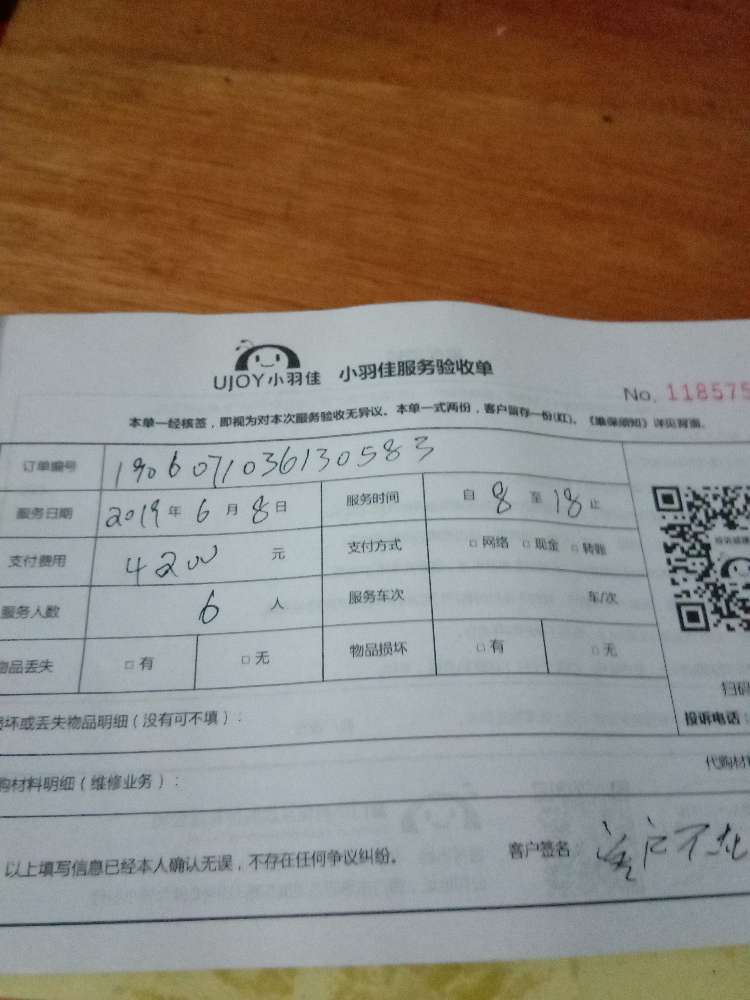 UJOY小羽佳 小羽佳服务验收单
No. 118575
本单一经核签，即视为对本次服务验收无异议。本单一式两份，客户留存一份(红)。《维保须知》详见背面。
订单编号 19060710361305 83
服务日期 2019年6月8日 服务时间 自8至18止
支付费用 4200元 支付方式 □网络 □现金 □转账
服务人数 6人 服务车次 车/次
物品丢失 □有 □无 物品损坏 □有 □无
坏或丢失物品明细（没有可不填）：
扫码
投诉电话：
购材料明细（维修业务）：
代购材
以上填写信息已经本人确认无误，不存在任何争议纠纷。
客户签名 不在